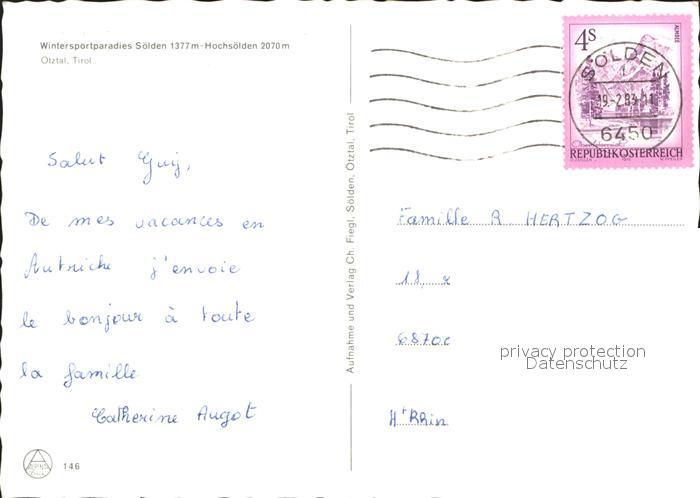 Wintersportparadies Sölden 1377 m - Hochsölden 2070 m
Ötztal, Tirol
Salut Guy,
De mes vacances en
Autriche j'envoie
le bonjour à toute
la famille
Catherine Augot
146
Aufnahme und Verlag Ch. Fiegl, Sölden, Ötztal, Tirol
4s
ALMSEE
SÖLDEN
19.-2.83-11
6450
REPUBLIK ÖSTERREICH
Famille R HERTZOG
18, r
68700
Ht Rhin
privacy protection
Datenschutz